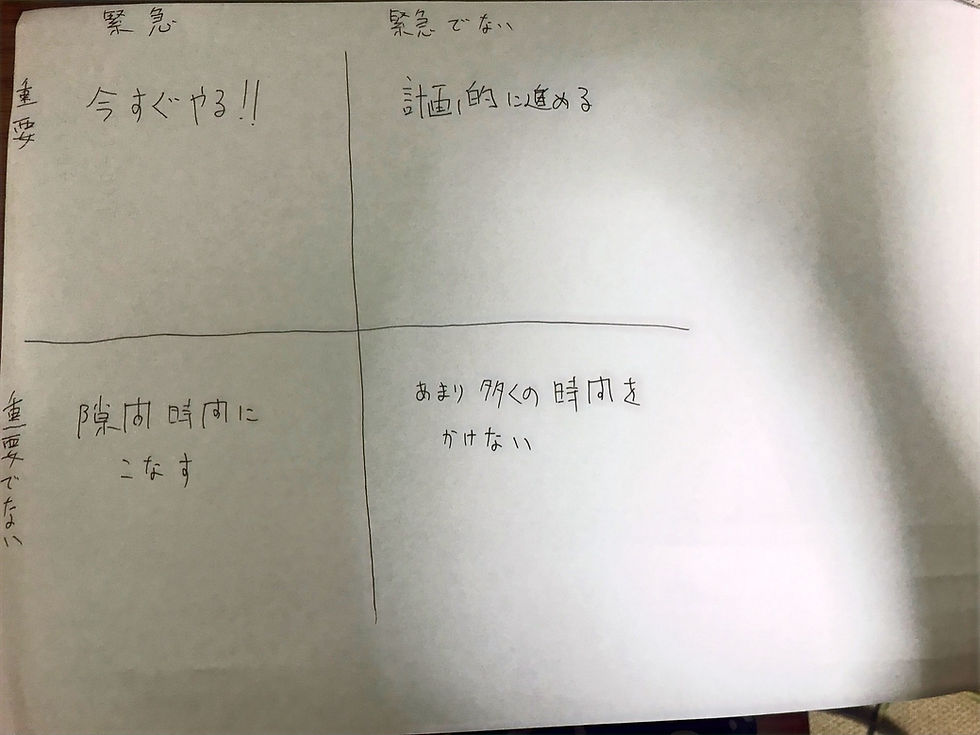 緊急
緊急でない
重要
今すぐやる!!
計画的に進める
重要でない
隙間時間に
こなす
あまり多くの時間を
かけない